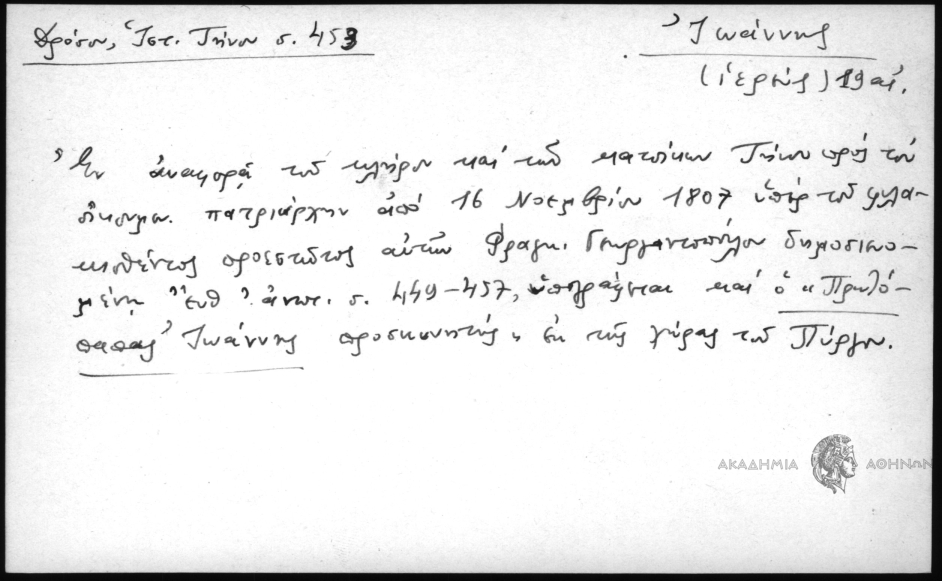 Δρόσου, Ἱστ. Τήνου σ. 453
Ἰωάννης
(ἱερεύς) 19 αἰ.
Ἐν ἀναφορᾷ τοῦ κλήρου καὶ τῶν κατοίκων Τήνου πρὸς τὸν
οἰκουμ. πατριάρχην ἀπὸ 16 Νοεμβρίου 1807 ὑπὲρ τοῦ φυλα-
κισθέντος προεστῶτος αὐτῶν Φραγκ. Γεωργαντοπούλου δημοσιευο-
μένῃ ἔνθ' ἀνωτ. σ. 449-457, ὑπογράφεται καὶ ὁ «Πρωτό-
παπας Ἰωάννης προσκυνητής» ἐκ τῆς χώρας τοῦ Πύργου.
ΑΚΑΔΗΜΙΑ ΑΘΗΝΩΝ